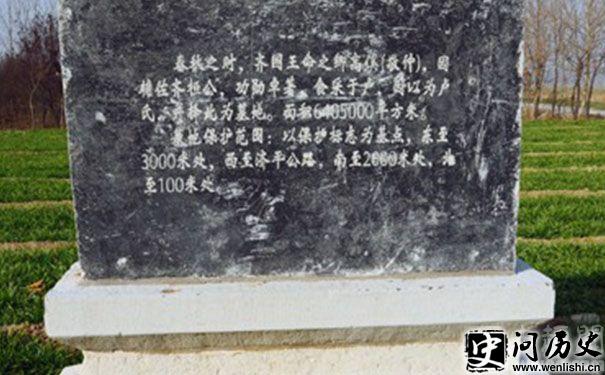 春秋之时，齐国王命之卿高傒(敬仲)，因
雄佐齐桓公，功勋卓著，食采于卢，因以为卢
氏，并择此为墓地。面积6405000平方米。
墓地保护范围：以保护标志为基点，东至
3000米处，西至济平公路，南至2000米处，北
至100米处。
史 问历史
www.wenlishi.cn